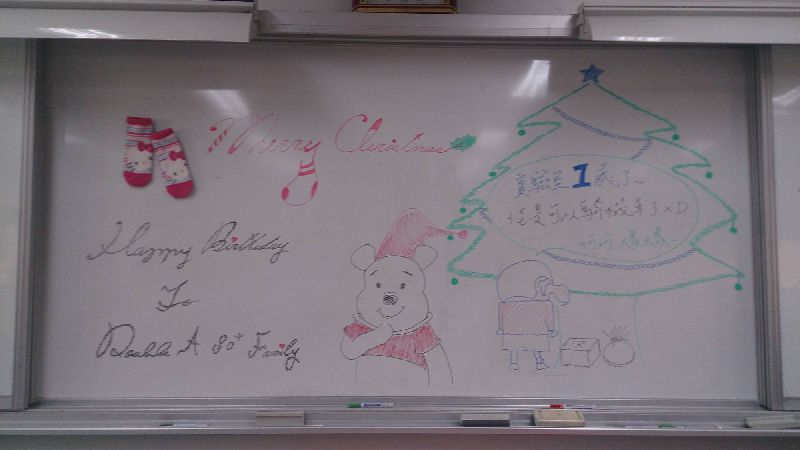 Merry Christmas
Happy Birthday
To
Double A 80+ Family
實驗室1歲了~
可以騎機車了XD